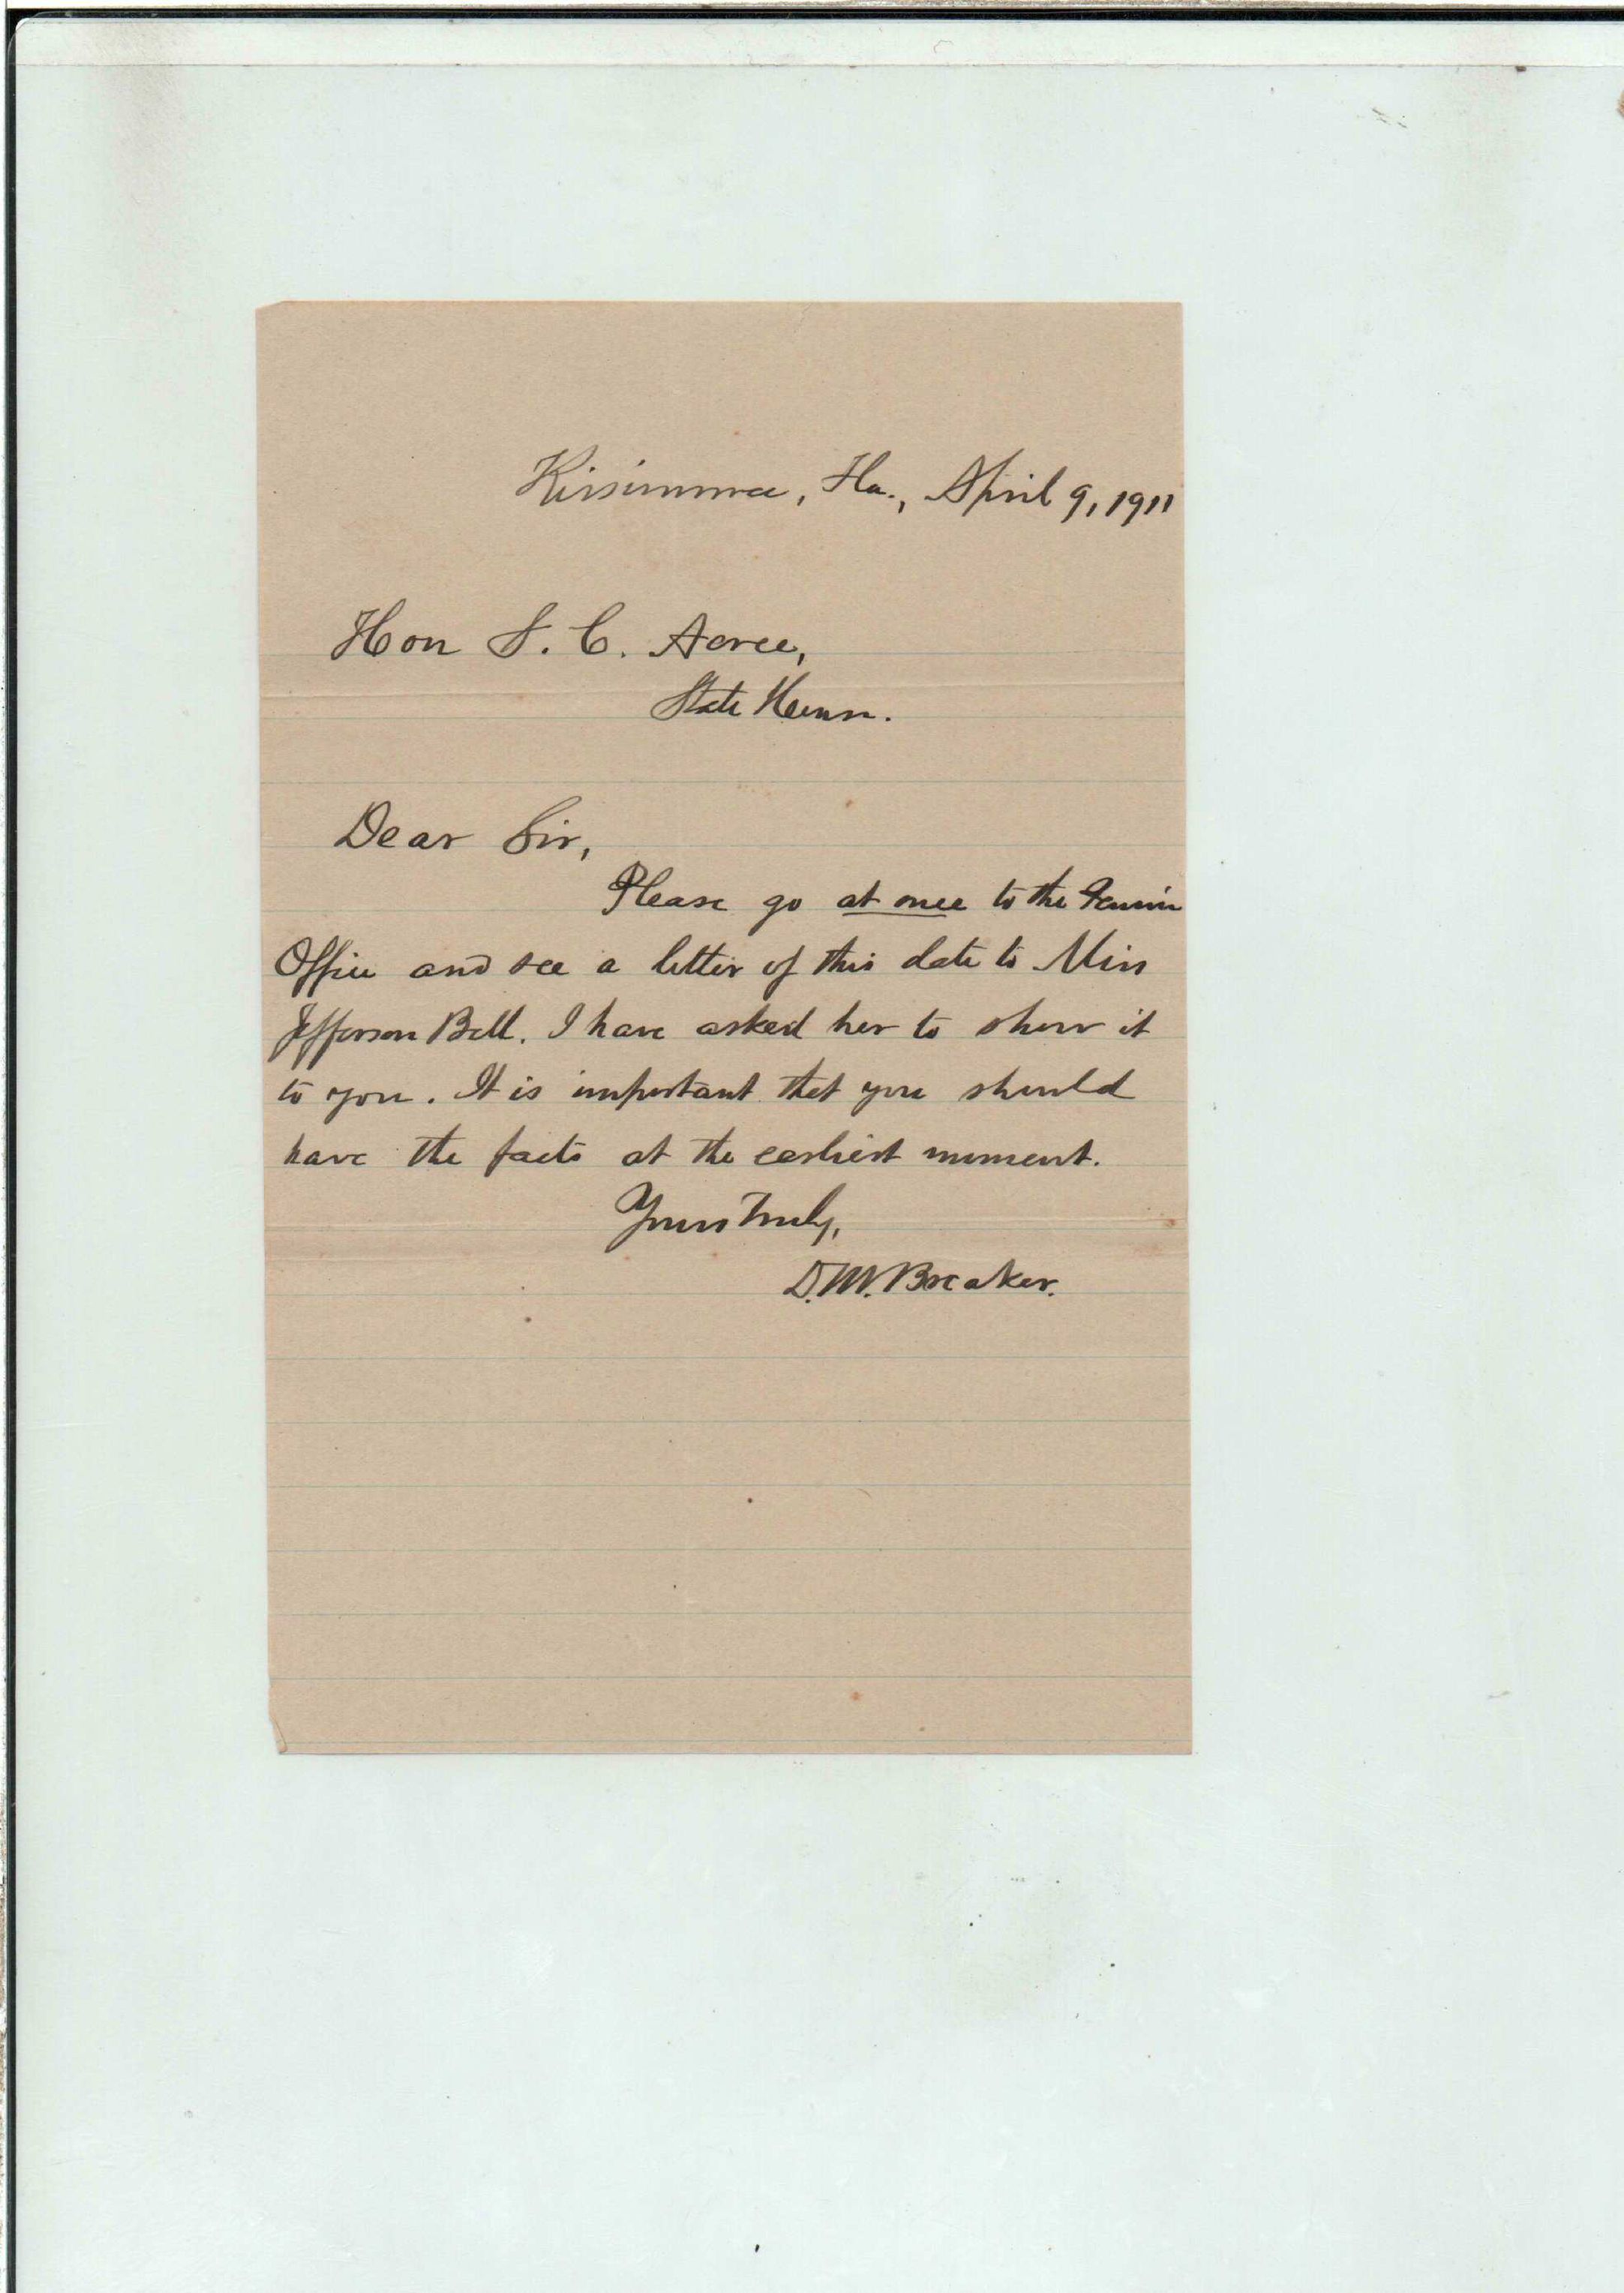 Kissimmee, Fla., April 9, 1911
Hon S. C. Acree,
State House.
Dear Sir,
Please go at once to the Pension
Office and see a letter of this date to Miss
Jefferson Bell. I have asked her to show it
to you. It is important that you should
have the facts at the earliest moment.
Yours truly,
D.M. Breaker.